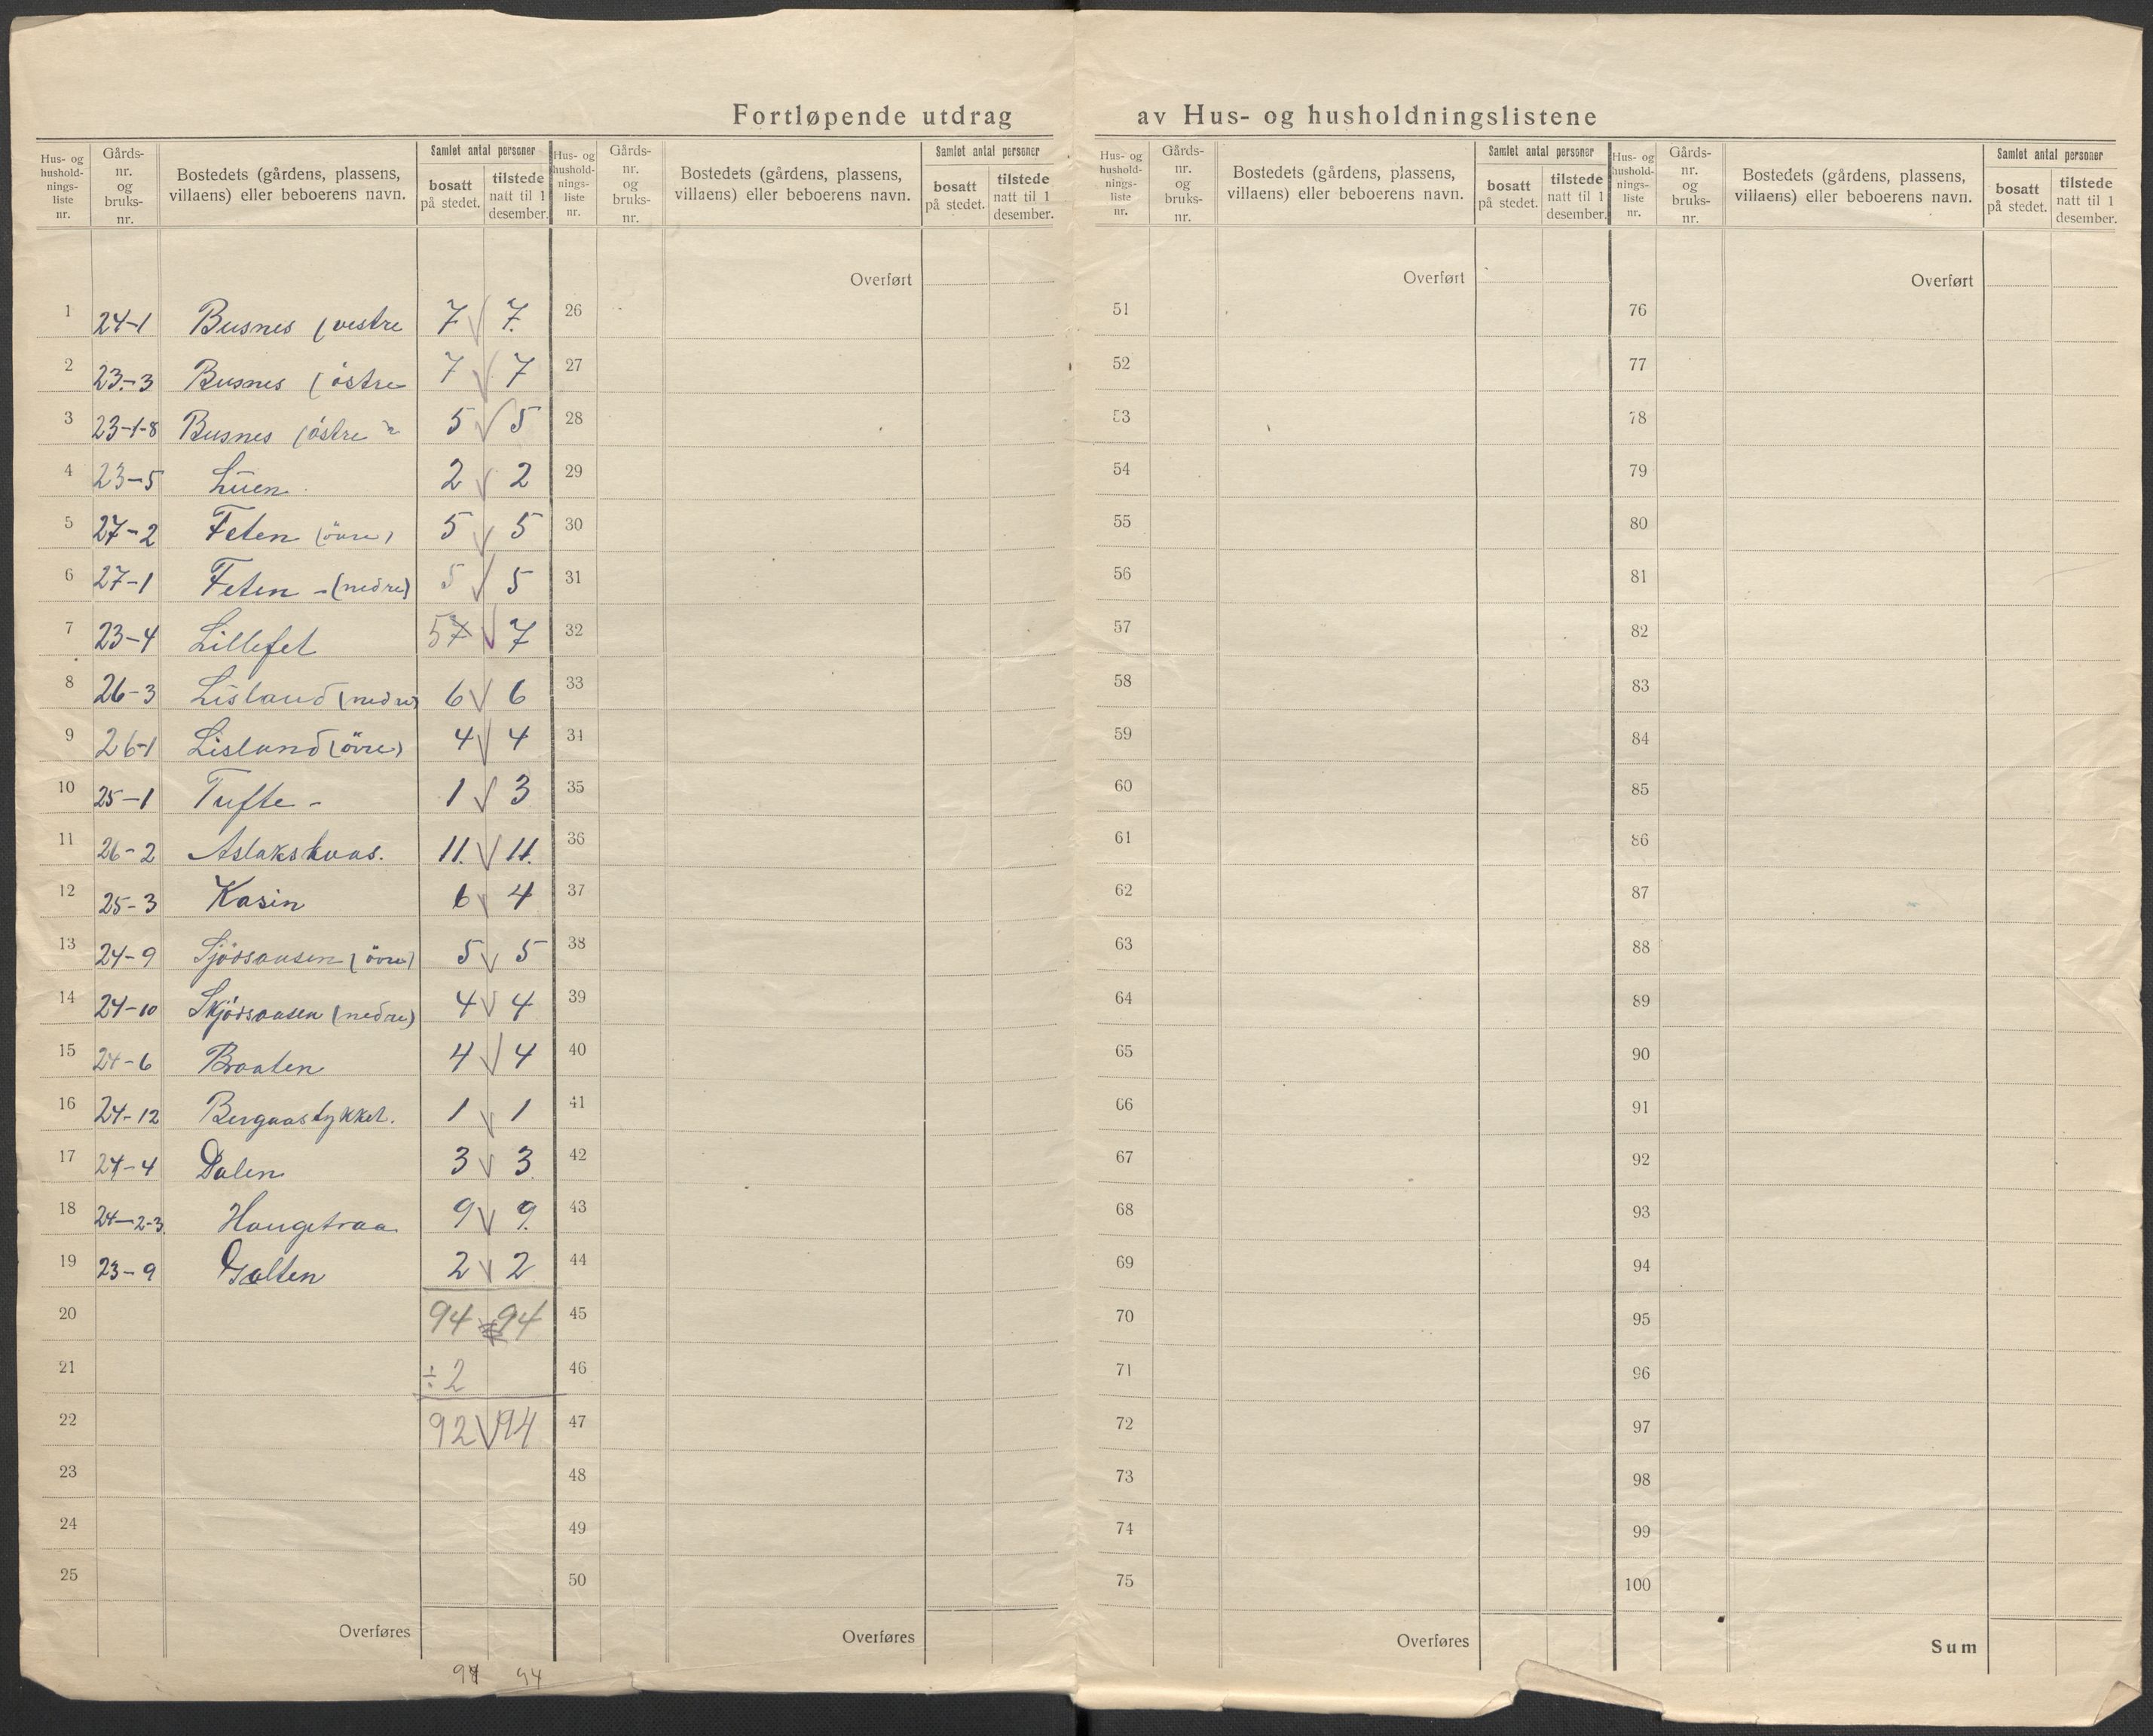 Fortløpende utdrag av Hus- og husholdningslistene
Hus- og hushold-nings-liste nr. Gårds-nr. og bruks-nr. Bostedets (gårdens, plassens, villaens) eller beboerens navn. Samlet antal personer bosatt på stedet. tilstede natt til 1 desember.
1 24-1 Busnes (vestre 7 7.
2 23-3 Busnes (östre 7 7
3 23-1-8 Busnes (östre 5 5
4 23-5 Luen 2 2
5 27-2 Feten (övre) 5 5
6 27-1 Feten - (nedre) 5 5
7 23-4 Lillefet 5 7 7
8 26-3 Lisland (nedre) 6 6
9 26-1 Lisland (övre) 4 4
10 25-1 Tufte - 1 3
11 26-2 Aslakshuas. 11. 11.
12 25-3 Kasin 6 4
13 24-9 Sjösaasen (övre) 5 5
14 24-10 Skjösaasen (nedre) 4 4
15 24-6 Braaten 4 4
16 24-12 Bergaastykket. 1 1
17 24-4 Dalen 3 3
18 24-2-3. Haugetraa 9 9.
19 23-9 Galten 2 2
20 94 94
21 ÷2
22 92 94
23
24
25
Overføres
94 94
Hus- og hushold-nings-liste nr. Gårds-nr. og bruks-nr. Bostedets (gårdens, plassens, villaens) eller beboerens navn. Samlet antal personer bosatt på stedet. tilstede natt til 1 desember.
Overført
26
27
28
29
30
31
32
33
34
35
36
37
38
39
40
41
42
43
44
45
46
47
48
49
50
Overføres
Hus- og hushold-nings-liste nr. Gårds-nr. og bruks-nr. Bostedets (gårdens, plassens, villaens) eller beboerens navn. Samlet antal personer bosatt på stedet. tilstede natt til 1 desember.
Overført
51
52
53
54
55
56
57
58
59
60
61
62
63
64
65
66
67
68
69
70
71
72
73
74
75
Overføres
Hus- og hushold-nings-liste nr. Gårds-nr. og bruks-nr. Bostedets (gårdens, plassens, villaens) eller beboerens navn. Samlet antal personer bosatt på stedet. tilstede natt til 1 desember.
Overført
76
77
78
79
80
81
82
83
84
85
86
87
88
89
90
91
92
93
94
95
96
97
98
99
100
Sum